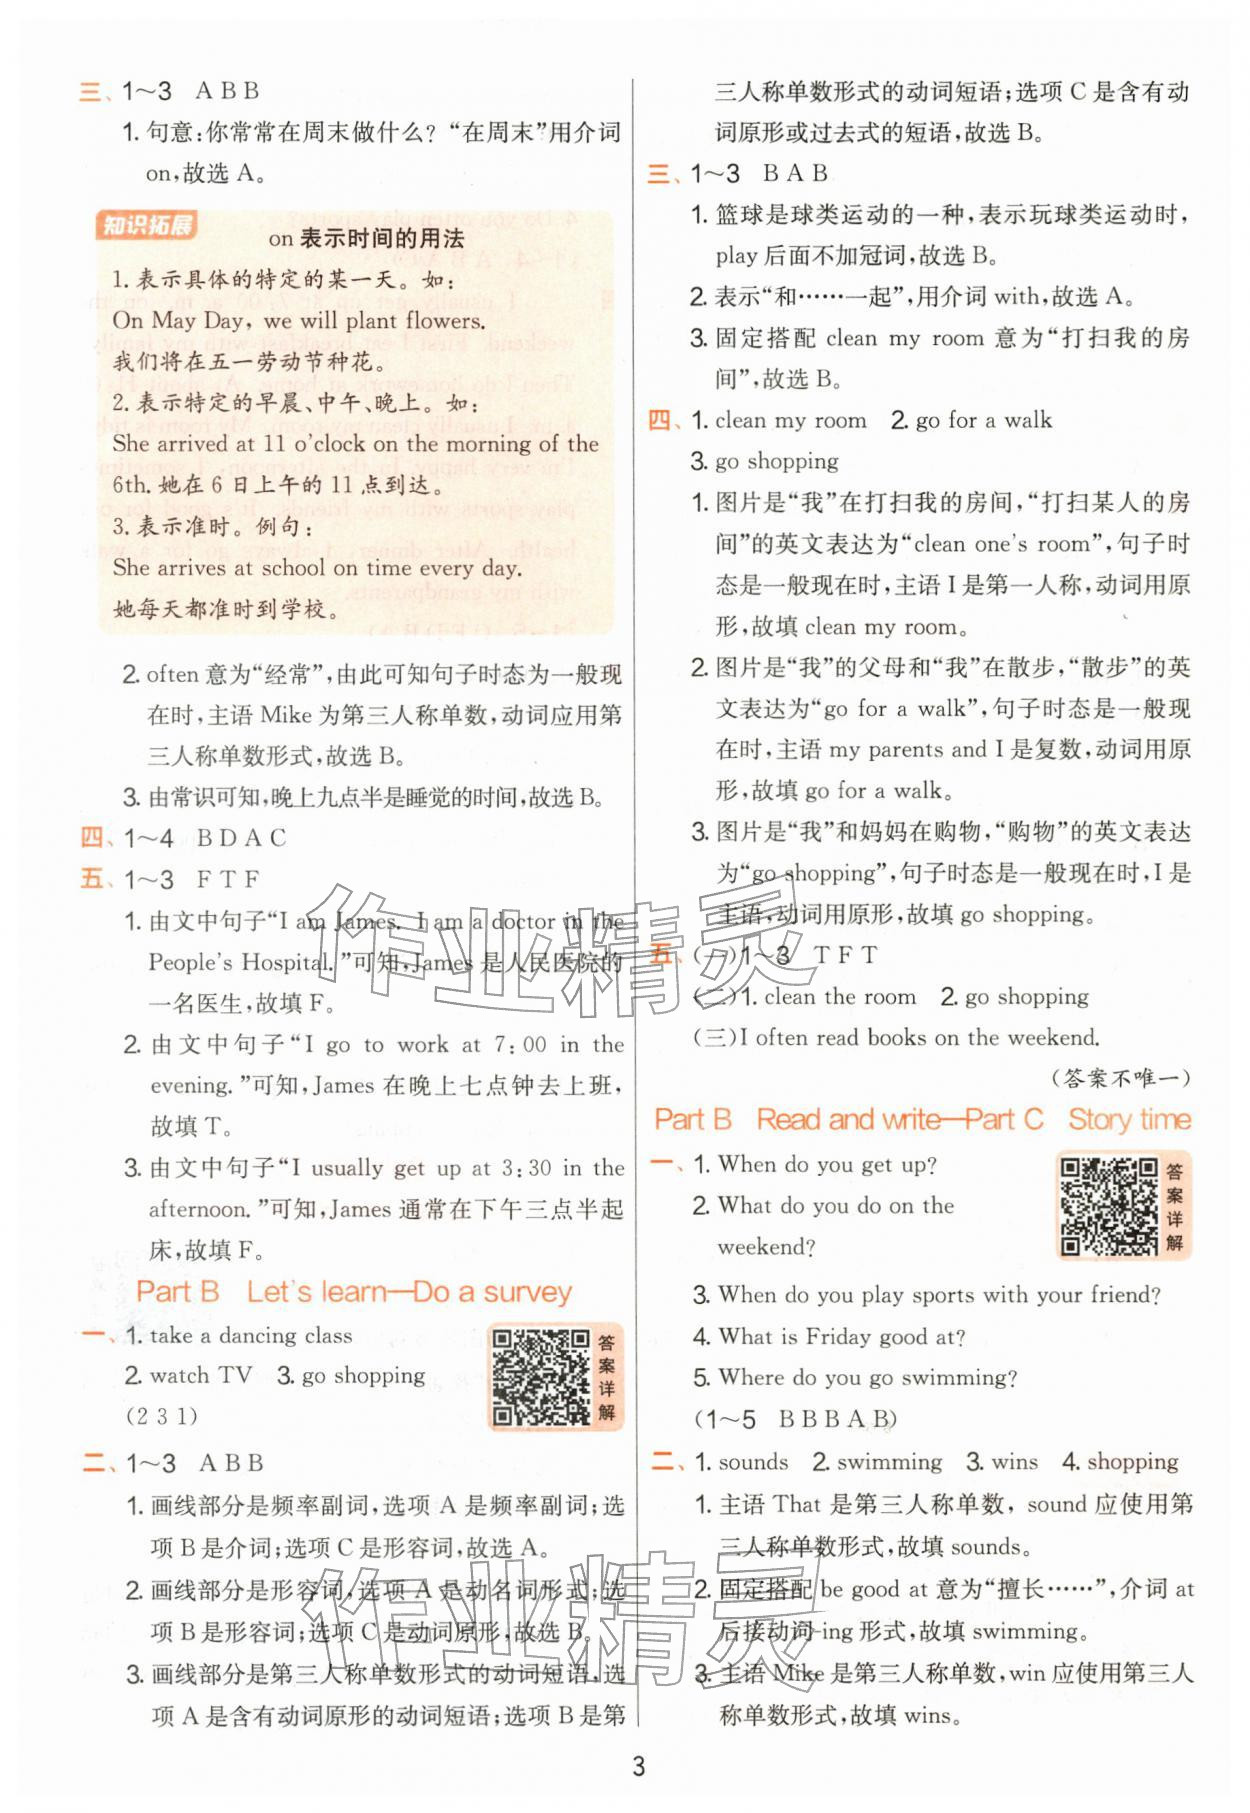 三、1～3 A B B
1. 句意:你常常在周末做什么?“在周末”用介词
on,故选 A。
知识拓展
on 表示时间的用法
1. 表示具体的特定的某一天。如:
On May Day, we will plant flowers.
我们将在五一劳动节种花。
2. 表示特定的早晨、中午、晚上。如:
She arrived at 11 o'clock on the morning of the
6th. 她在 6 日上午的 11 点到达。
3. 表示准时。例句:
She arrives at school on time every day.
她每天都准时到学校。
2. often 意为“经常”,由此可知句子时态为一般现
在时,主语 Mike 为第三人称单数,动词应用第
三人称单数形式,故选 B。
3. 由常识可知,晚上九点半是睡觉的时间,故选 B。
四、1～4 B D A C
五、1～3 F T F
1. 由文中句子“I am James. I am a doctor in the
People's Hospital.”可知,James 是人民医院的
一名医生,故填 F。
2. 由文中句子“I go to work at 7:00 in the
evening.”可知,James 在晚上七点钟去上班,
故填 T。
3. 由文中句子“I usually get up at 3:30 in the
afternoon.”可知,James 通常在下午三点半起
床,故填 F。
Part B Let's learn—Do a survey
一、1. take a dancing class
2. watch TV 3. go shopping
(2 3 1)
答案详解
二、1～3 A B B
1. 画线部分是频率副词,选项 A 是频率副词;选
项 B 是介词;选项 C 是形容词,故选 A。
2. 画线部分是形容词,选项 A 是动名词形式;选
项 B 是形容词;选项 C 是动词原形,故选 B。
3. 画线部分是第三人称单数形式的动词短语,选
项 A 是含有动词原形的动词短语;选项 B 是第
三人称单数形式的动词短语;选项 C 是含有动
词原形或过去式的短语,故选 B。
三、1～3 B A B
1. 篮球是球类运动的一种,表示玩球类运动时,
play 后面不加冠词,故选 B。
2. 表示“和……一起”,用介词 with,故选 A。
3. 固定搭配 clean my room 意为“打扫我的房
间”,故选 B。
四、1. clean my room 2. go for a walk
3. go shopping
1. 图片是“我”在打扫我的房间,“打扫某人的房
间”的英文表达为“clean one's room”,句子时
态是一般现在时,主语 I 是第一人称,动词用原
形,故填 clean my room。
2. 图片是“我”的父母和“我”在散步,“散步”的英
文表达为“go for a walk”,句子时态是一般现
在时,主语 my parents and I 是复数,动词用原
形,故填 go for a walk。
3. 图片是“我”和妈妈在购物,“购物”的英文表达
为“go shopping”,句子时态是一般现在时,I 是
主语,动词用原形,故填 go shopping。
五、(一)1～3 T F T
(二)1. clean the room 2. go shopping
(三)I often read books on the weekend.
(答案不唯一)
Part B Read and write—Part C Story time
一、1. When do you get up?
2. What do you do on the
weekend?
答案详解
3. When do you play sports with your friend?
4. What is Friday good at?
5. Where do you go swimming?
(1～5 B B B A B)
二、1. sounds 2. swimming 3. wins 4. shopping
1. 主语 That 是第三人称单数, sound 应使用第
三人称单数形式,故填 sounds。
2. 固定搭配 be good at 意为“擅长……”,介词 at
后接动词-ing 形式,故填 swimming。
3. 主语 Mike 是第三人称单数,win 应使用第三人
称单数形式,故填 wins。
3
作业精灵
作业精灵